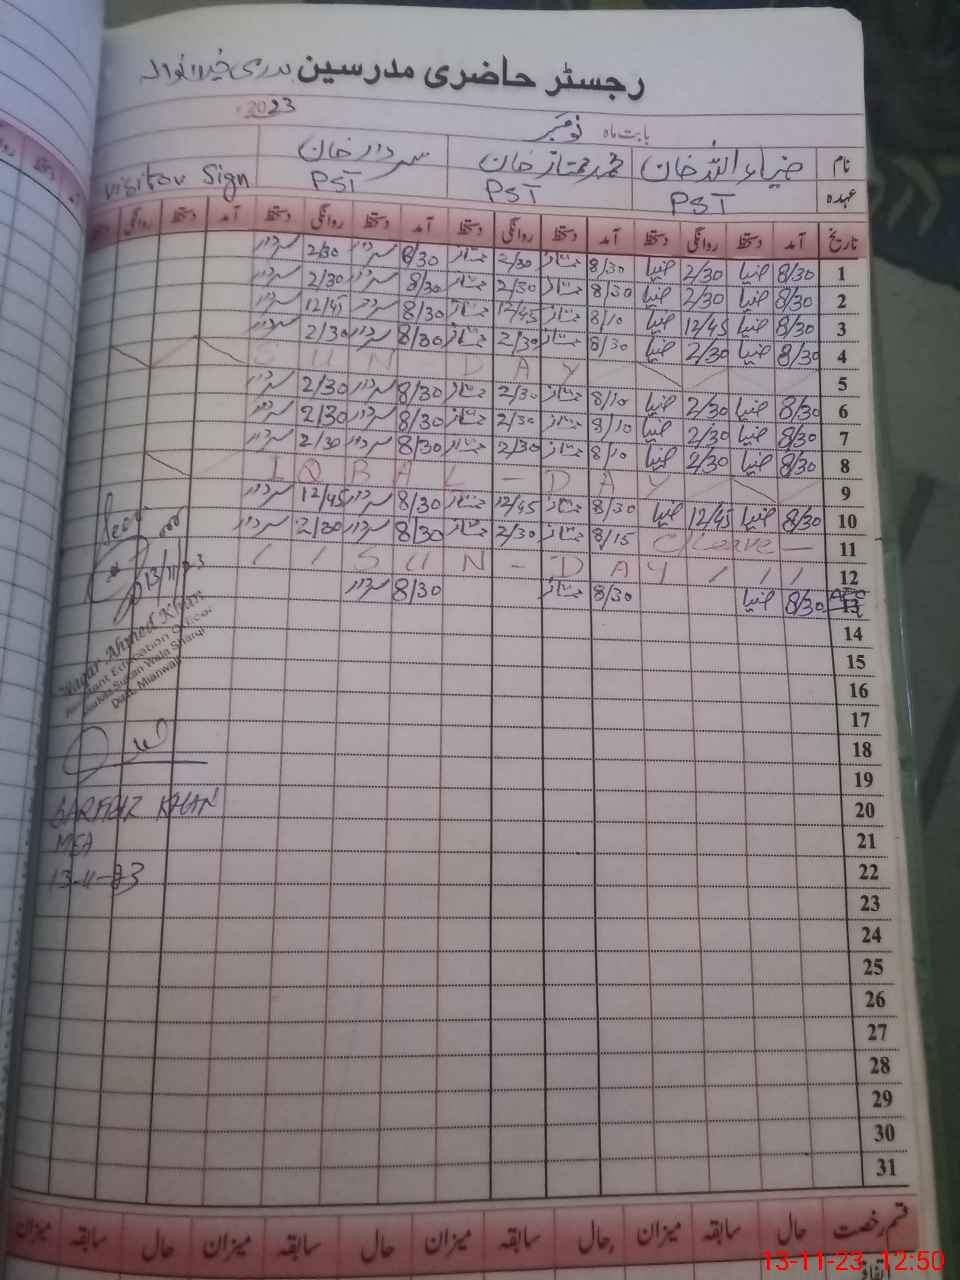 رجسٹر حاضری مدرسین
2023
بابت ماہ نومبر
نام ضیاء اللہ خان محمد ممتاز خان سردار خان
عہدہ PST PST PST Visitor Sign
تاریخ آمد دستخط روانگی دستخط آمد دستخط روانگی دستخط آمد دستخط روانگی دستخط آمد دستخط روانگی
1 8/30 ضیا 2/30 ضیا 8/30 ممتاز 2/30 ممتاز 8/30 سردار 2/30 سردار
2 8/30 ضیا 2/30 ضیا 8/30 ممتاز 2/30 ممتاز 8/30 سردار 2/30 سردار
3 8/30 ضیا 12/45 ضیا 8/10 ممتاز 12/45 ممتاز 8/30 سردار 12/45 سردار
4 8/30 ضیا 2/30 ضیا 8/30 ممتاز 2/30 ممتاز 8/30 سردار 2/30 سردار
5 SUNDAY
6 8/30 ضیا 2/30 ضیا 8/10 ممتاز 2/30 ممتاز 8/30 سردار 2/30 سردار
7 8/30 ضیا 2/30 ضیا 8/10 ممتاز 2/30 ممتاز 8/30 سردار 2/30 سردار
8 8/30 ضیا 2/30 ضیا 8/10 ممتاز 2/30 ممتاز 8/30 سردار 2/30 سردار
9 IQBAL-DAY
10 8/30 ضیا 12/45 ضیا 8/30 ممتاز 12/45 ممتاز 8/30 سردار 12/45 سردار
11 C/Leave 8/15 ممتاز 2/30 ممتاز 8/30 سردار 2/30 سردار
12 SUN-DAY
13 8/30 ضیا 8/30 ممتاز 8/30 سردار
14
15
16
17
18
19
20
21
22
23
24
25
26
27
28
29
30
31
13/11/23
Waqar Ahmed Khan
Assistant Education Officer
Wala Sharqi
Distt. Mianwali
SARFRAZ KHAN
MEA
13-11-23
قسم رخصت حال سابقہ میزان حال سابقہ میزان حال سابقہ میزان حال سابقہ میزان
13-11-23 12:50